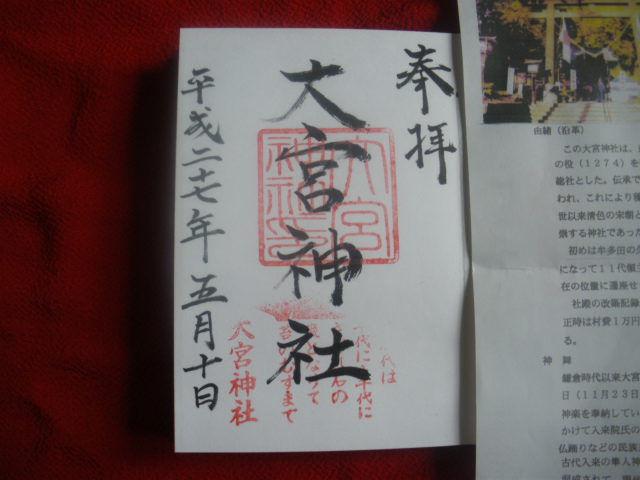 奉拝
大宮神社
平成二十七年五月十日
大宮神社
大宮
神社
代は
千代に
の
なりて
苔のむすまで
由緒（沿革）
この大宮神社は、
の役（１２７４）を
総社とした。伝承で
われ、これにより
世以来清色の宋朝と
崇する神社であった
初めは牟多田の
になって１１代領
在の位置に遷座せ
社殿の改築記録
正時は村費１万円
る。
神　舞
鎌倉時代以来大宮
日（１１月２３日
神楽を奉納してい
かけて入来院氏の
仏踊りなどの民族
古代入来の隼人神